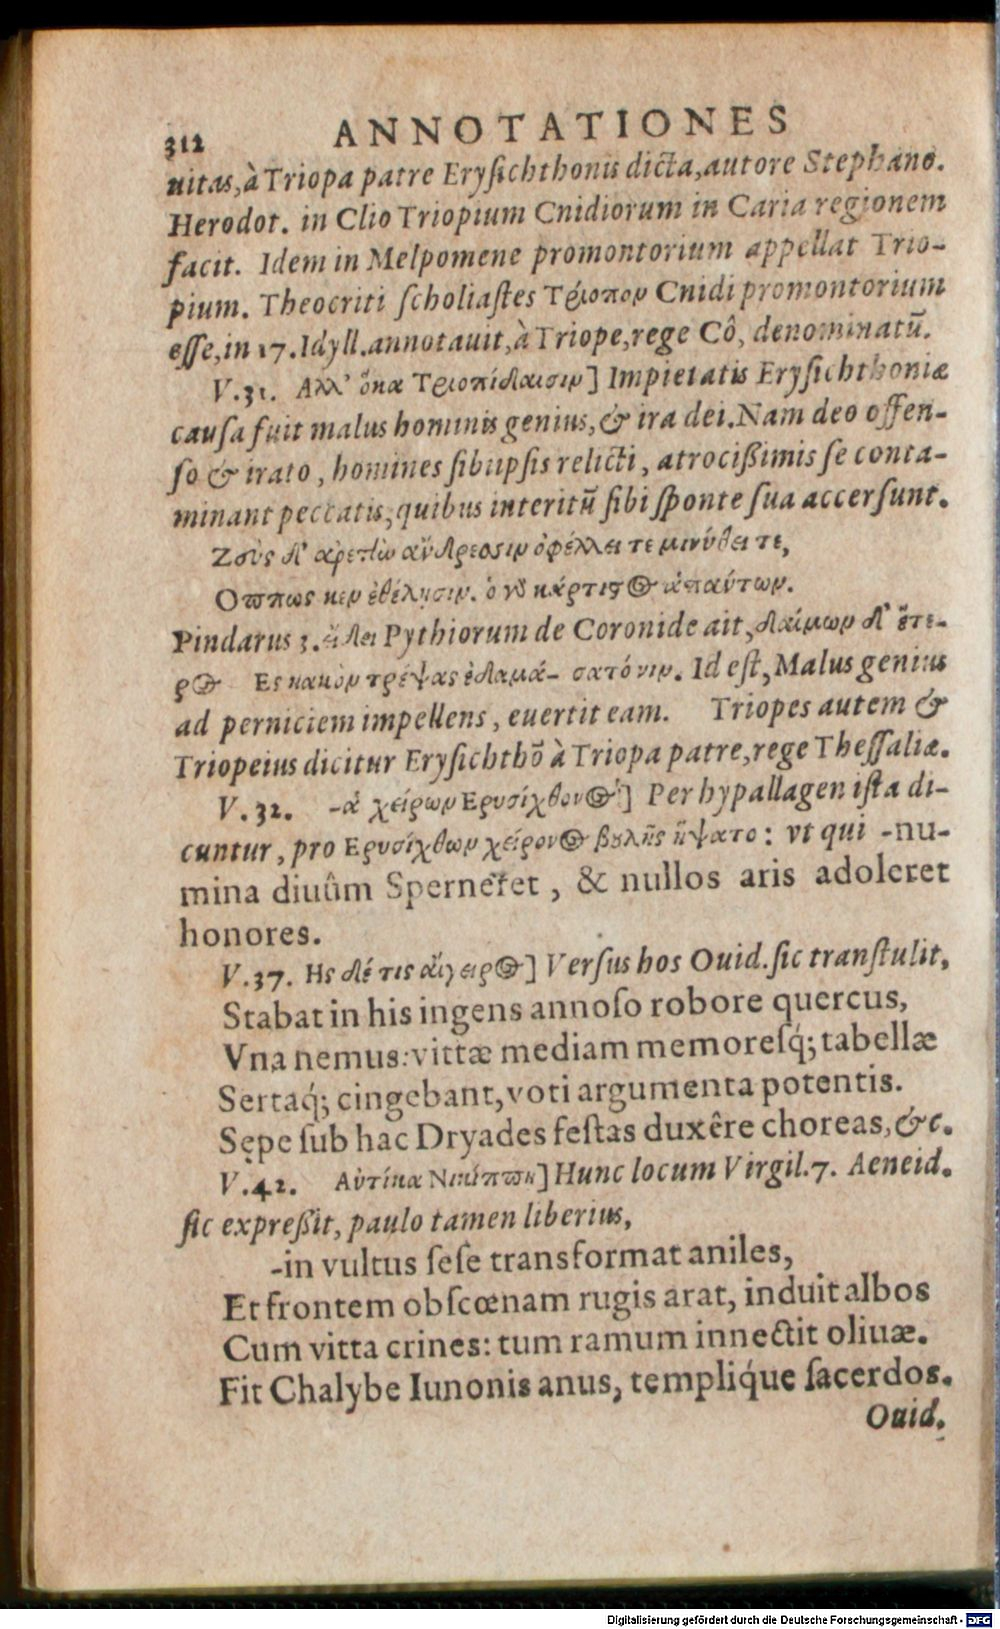 312 ANNOTATIONES
uitas, à Triopa patre Erysichthonis dicta, autore Stephano.
Herodot. in Clio Triopium Cnidiorum in Caria regionem
facit. Idem in Melpomene promontorium appellat Trio-
pium. Theocriti scholiastes Τρίοπον Cnidi promontorium
esse, in 17. Idyll. annotauit, à Triope, rege Cô, denominatũ.
V.31. Αλλ' ὅκα Τριοπίδαισιν] Impietatis Erysichthoniæ
causa fuit malus hominis genius, & ira dei. Nam deo offen-
so & irato, homines sibiipsis relicti, atrocißimis se conta-
minant peccatis, quibus interitũ sibi sponte sua accersunt.
Ζεὺς δ' ἀρετὼ ἄνδρεσσιν ὀφέλλει τε μινύθει τε,
Οππως κεν ἐθέλησιν. ὁ γὸ κάρτιςος ἁπαύτων.
Pindarus 3. εἴδει Pythiorum de Coronide ait, δαίμων δ' ἕτε-
ρος Ες κακὸν τρέψας ἐδαμά- σατό νιν. Id est, Malus genius
ad perniciem impellens, euertit eam. Triopes autem &
Triopeius dicitur Erysichthõ à Triopa patre, rege Thessaliæ.
V.32. -ἁ χείρων Ερυσίχθονος] Per hypallagen ista di-
cuntur, pro Ερυσίχθων χείρονος βȣλῆς ἥψατο: vt qui -nu-
mina diuûm Sperneret, & nullos aris adoleret
honores.
V.37. Ης δέ τις αἴγειρος] Versus hos Ouid. sic transtulit,
Stabat in his ingens annoso robore quercus,
Vna nemus: vittæ mediam memoresq́; tabellæ
Sertaq́; cingebant, voti argumenta potentis.
Sępe sub hac Dryades festas duxêre choreas, &c.
V.42. Αὐτίκα Νικίππῃ] Hunc locum Virgil. 7. Aeneid.
sic expreßit, paulo tamen liberius,
-in vultus sese transformat aniles,
Et frontem obscœnam rugis arat, induit albos
Cum vitta crines: tum ramum innectit oliuæ.
Fit Chalybe Iunonis anus, templiq́ue sacerdos.
Ouid.
Digitalisierung gefördert durch die Deutsche Forschungsgemeinschaft - DFG